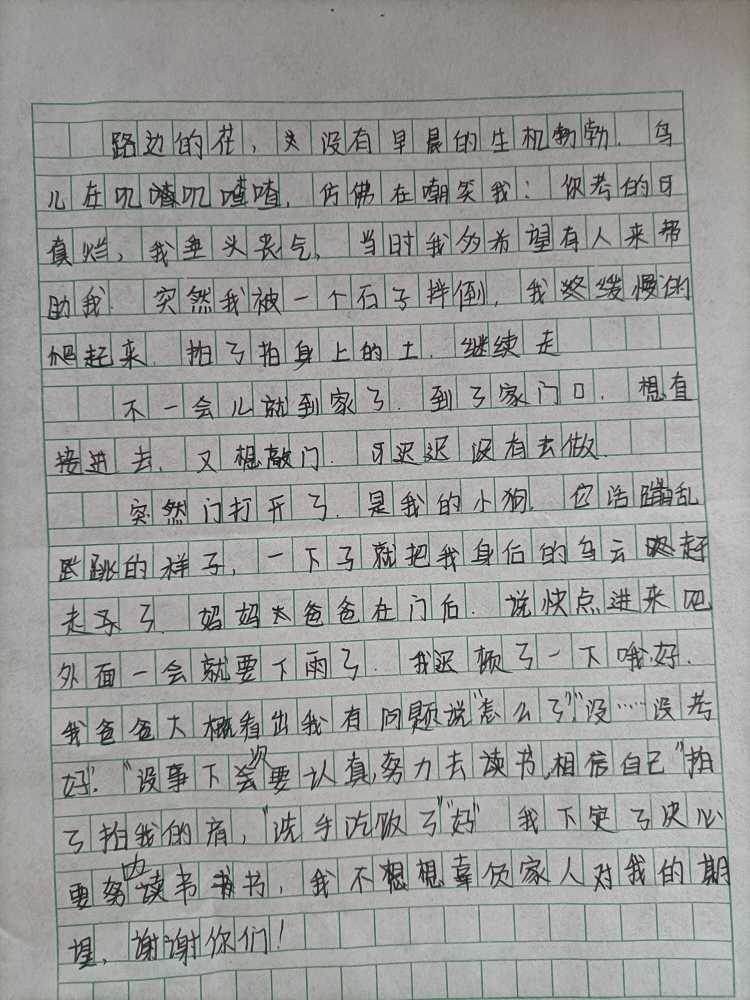 路边的花，没有早晨的生机勃勃.鸟
儿在叽喳叽喳喳，仿佛在嘲笑我：你考的可
真烂，我垂头丧气，当时我多希望有人来帮
助我.突然我被一个石子拌倒，我缓慢的
爬起来.拍了拍身上的土.继续走
不一会儿就到家了.到了家门口.想直
接进去，又想敲门.可迟迟没有去做.
突然门打开了.是我的小狗.它活蹦乱
跳的样子，一下子就把我身后的乌云赶
走了.妈妈爸爸在门后.说快点进来吧
外面一会就要下雨了.我迟顿了一下哦好.
我爸爸大概看出我有问题说"怎么了?""没……没考
好"."没事下次要认真,努力去读书,相信自己"拍
了拍我的肩，"洗手吃饭了""好"我下定了决心
要努力读书，我不想辜负家人对我的期
望，谢谢你们！